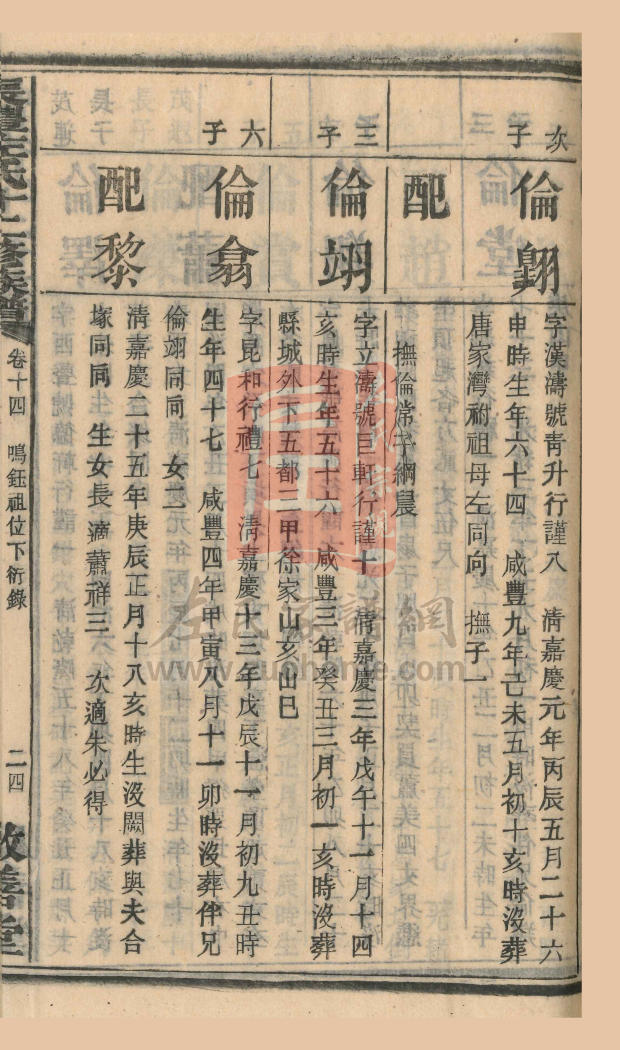 次子
倫翺
字漢濤號靑升行謹八 淸嘉慶元年丙辰五月二十六
申時生年六十四 咸豐九年己未五月初十亥時沒葬
唐家灣祔祖母左同向 撫子一
配
撫倫常子綱晨
三子
倫翊
字立濤號巨軒行謹十 淸嘉慶三年戊午十一月十四
亥時生年五十六 咸豐三年癸丑三月初一亥時沒葬
縣城外下五都二甲徐家山亥山巳
六子
倫翕
字昆和行禮七 淸嘉慶十三年戊辰十一月初九丑時
生年四十七 咸豐四年甲寅八月十一卯時沒葬伴兄
倫翊同向 女二
配黎
淸嘉慶二十五年庚辰正月十八亥時生沒闕葬與夫合
塚同向 生女長適蕭祥三 次適朱必得
十二修族譜
卷十四 鳴鈺祖位下衍錄
二四
敦善堂
左氏家譜網
www.zuohome.com